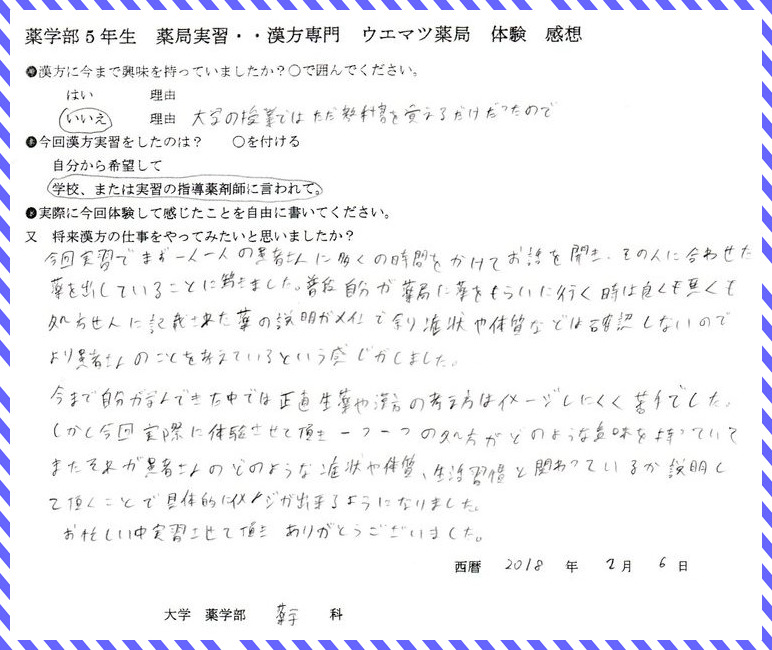 薬学部5年生　薬局実習・・漢方専門　ウエマツ薬局　体験　感想
●漢方に今まで興味を持っていましたか？○で囲んでください。
はい　　　理由
いいえ　　理由　大学の授業ではただ教科書を覚えるだけだったので
●今回漢方実習をしたのは？　　○を付ける
自分から希望して
学校、または実習の指導薬剤師に言われて。
●実際に今回体験して感じたことを自由に書いてください。
又　将来漢方の仕事をやってみたいと思いましたか？
今回実習でまず一人一人の患者さんに多くの時間をかけてお話を聞き、その人に合わせた
薬を出していることに驚きました。普段自分が薬局に薬をもらいに行く時は良くも悪くも
処方せんに記載された薬の説明がメインで余り症状や体質などは確認しないので
より患者さんのことを考えているという感じがしました。
今まで自分が学んできた中では正直生薬や漢方の考え方はイメージしにくく苦手でした。
しかし今回実際に体験させて頂き一つ一つの処方がどのような意味を持っていて
またそれが患者さんのどのような症状や体質、生活習慣と関わっているか説明し
て頂くことで具体的にイメージが出来るようになりました。
お忙しい中実習させて頂きありがとうございました。
西暦　2018　年　2月　6日
大学　薬学部　薬学　科